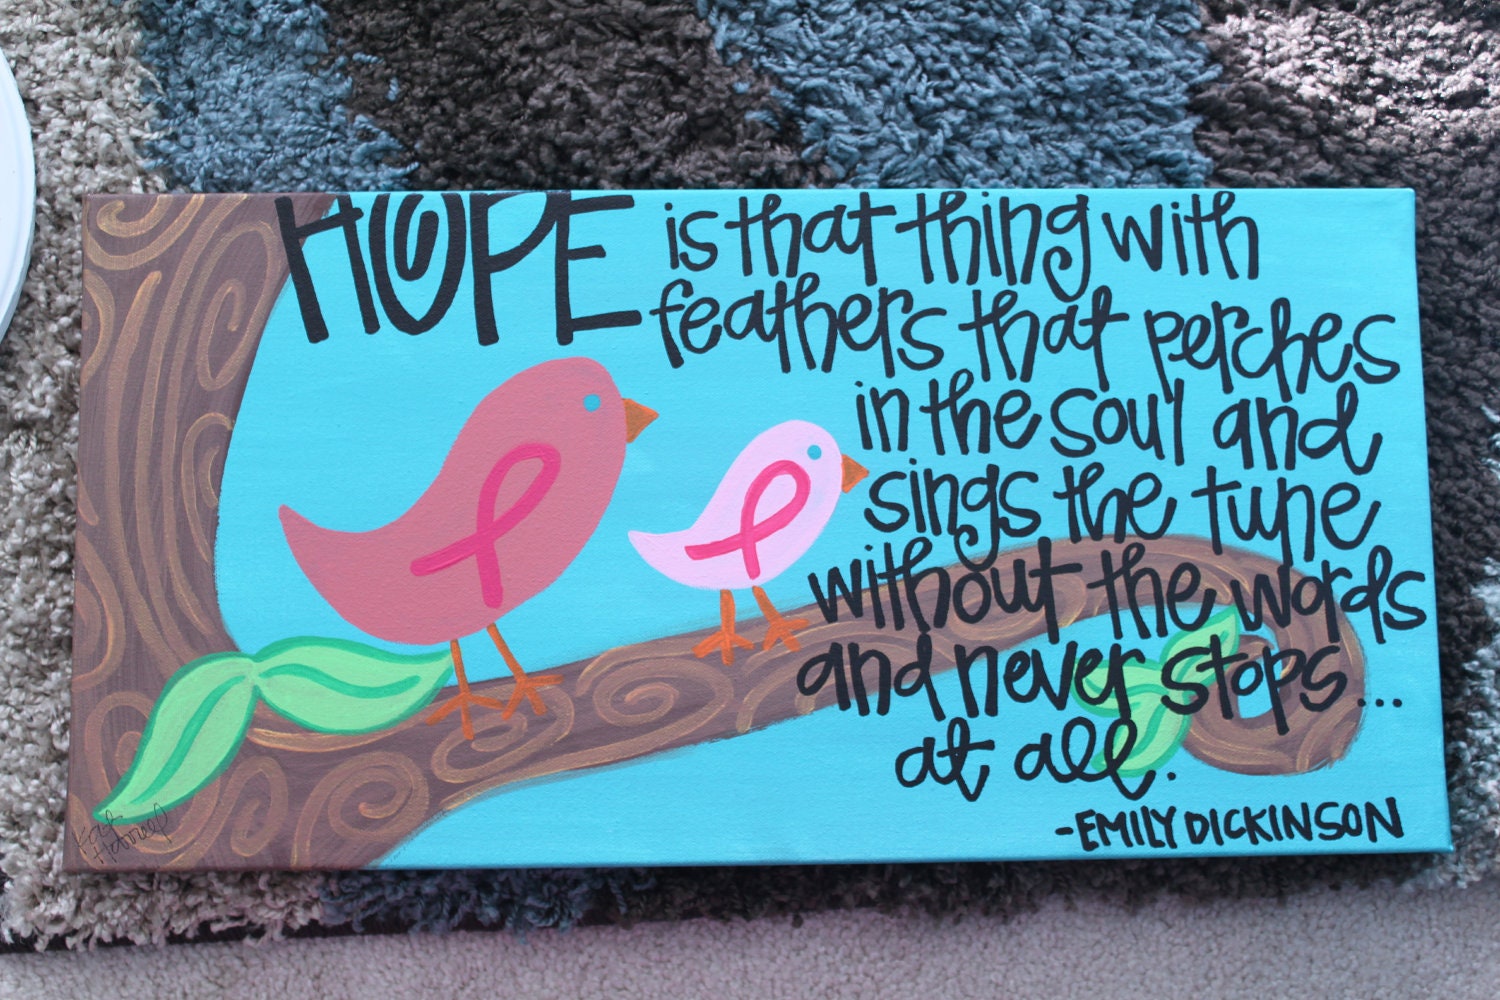 HOPE is that thing with
feathers that perches
in the soul and
sings the tune
without the words
and never stops...
at all.
-EMILY DICKINSON